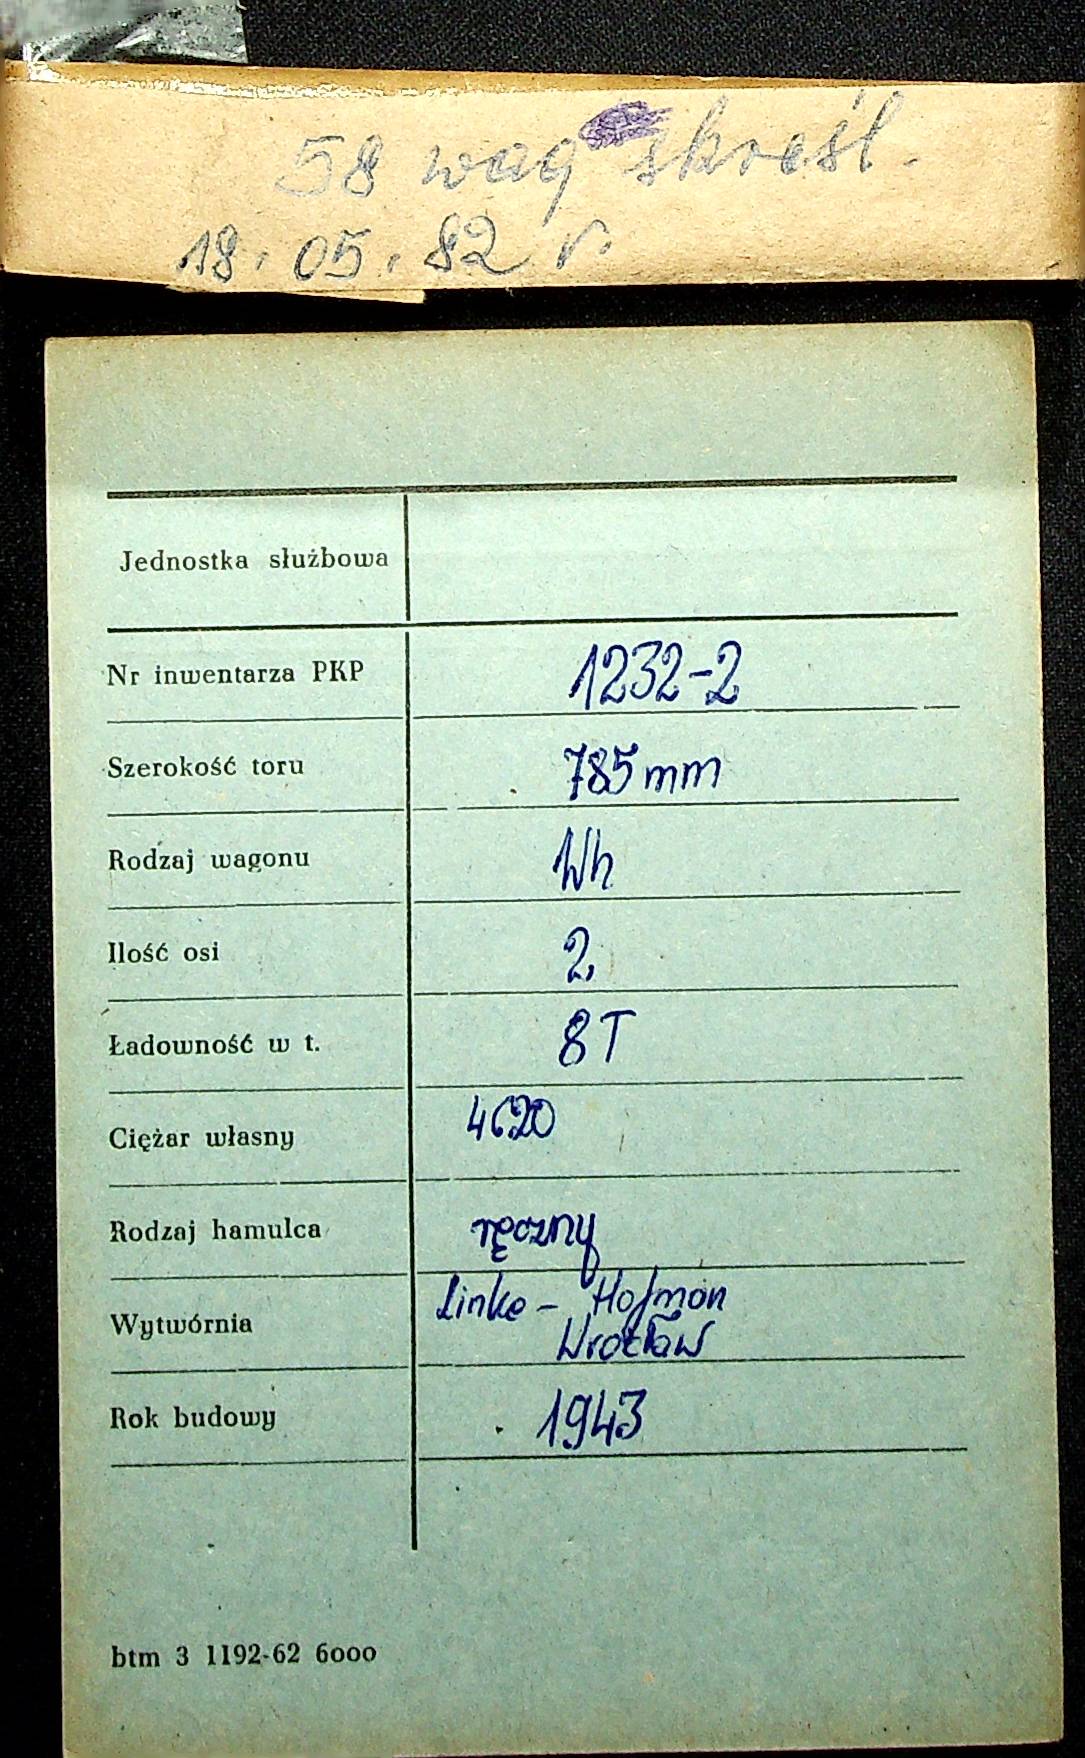 58 wag skreśl.
18.05.82 r.
Jednostka służbowa
Nr inwentarza PKP 1232-2
Szerokość toru 785 mm
Rodzaj wagonu Wh
Ilość osi 2
Ładowność w t. 8T
Ciężar własny 4620
Rodzaj hamulca ręczny
Wytwórnia Linke - Hofman
Wrocław
Rok budowy 1943
btm 3 1192-62 6000